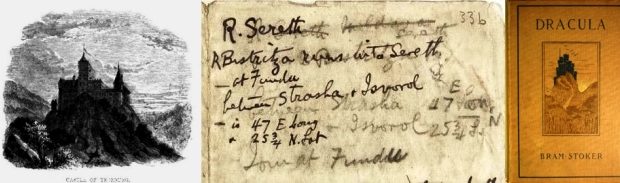 CASTLE OF TERZBURG.
33b
R. Sereth
R Bistritza runs into Sereth
– at Fundu
between Strasha & Isvorol
– is 47 E Long
& 25¾ N. Lat
E
47
25¾ N
Strasha
Isvorol
at Fundu
DRACULA
BRAM STOKER